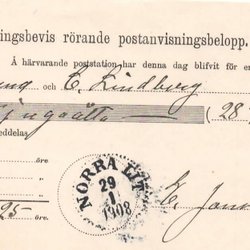 ningsbevis rörande postanvisningsbelopp.
Å härvarande poststation har denna dag blifvit för en
och C. Lindberg
tjuguåtta (28
eddelas
öre
25 öre.
NORRA LJT
29
1
1908
E. Jans